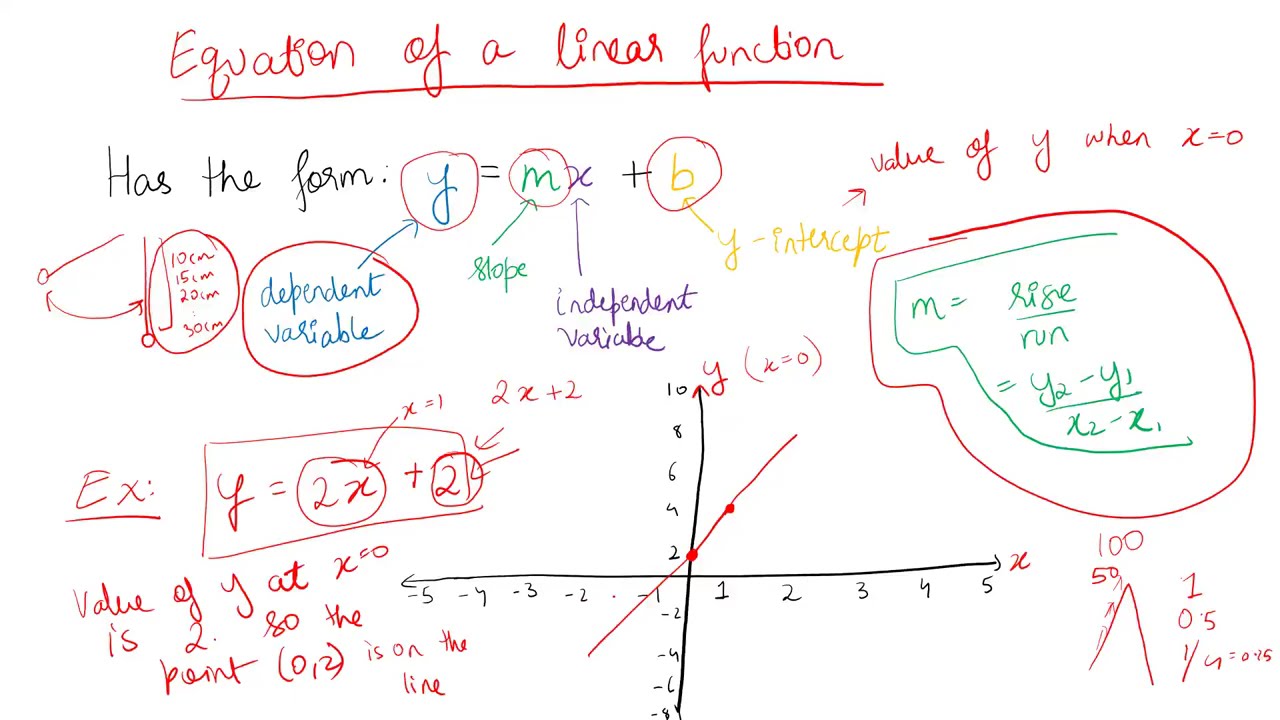 Equation of a linear function
value of y when x=0
Has the form: y = mx + b
y-intercept
slope
10cm
15cm
20cm
:
30cm
dependent
variable
independent
variable
m = rise
run
= y₂ - y₁
x₂ - x₁
y (x=0)
x=1
2x+2
Ex: y = 2x + 2
10
8
6
4
2
-5 -4 -3 -2 -1 1 2 3 4 5 x
-2
-4
-6
-8
value of y at x=0
is 2. so the
point (0,2) is on the
line
100
50
1
0.5
1/4 = 0.25